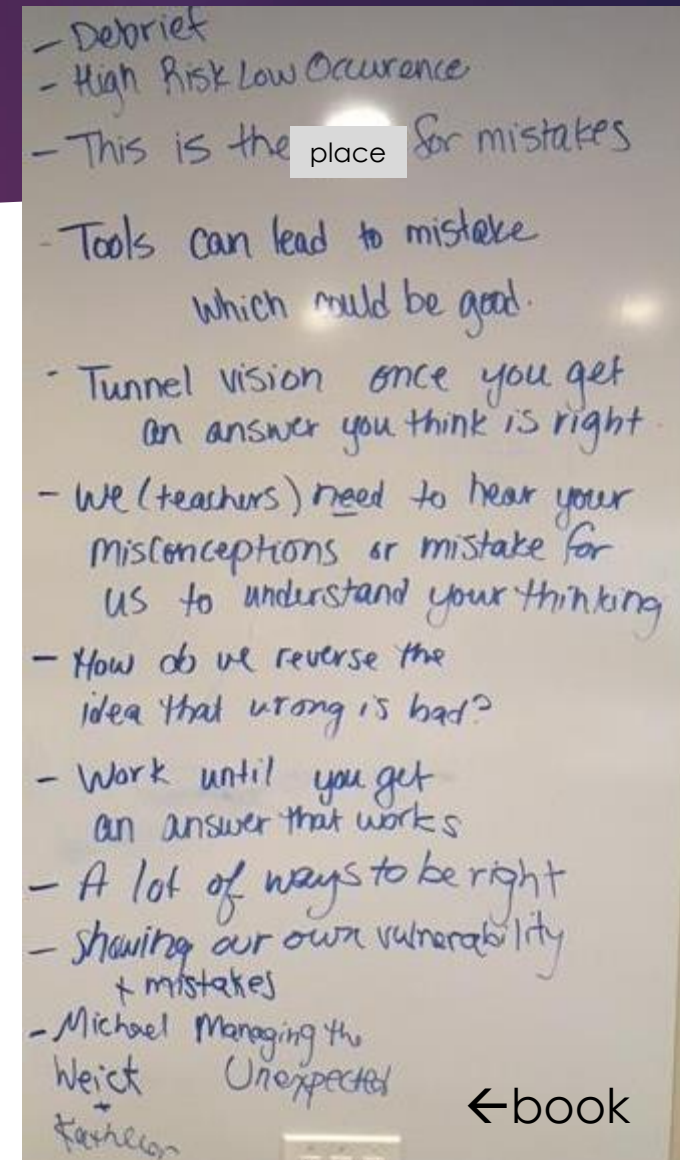 - Debrief
- High Risk Low Occurence
- This is the place for mistakes
- Tools can lead to mistake
which could be good.
- Tunnel vision once you get
an answer you think is right.
- We (teachers) need to hear your
misconceptions or mistake for
us to understand your thinking
- How do we reverse the
idea that wrong is bad?
- Work until you get
an answer that works
- A lot of ways to be right
- showing our own vulnerability
+ mistakes
- Michael Managing the
Weick Unexpected
+
←book